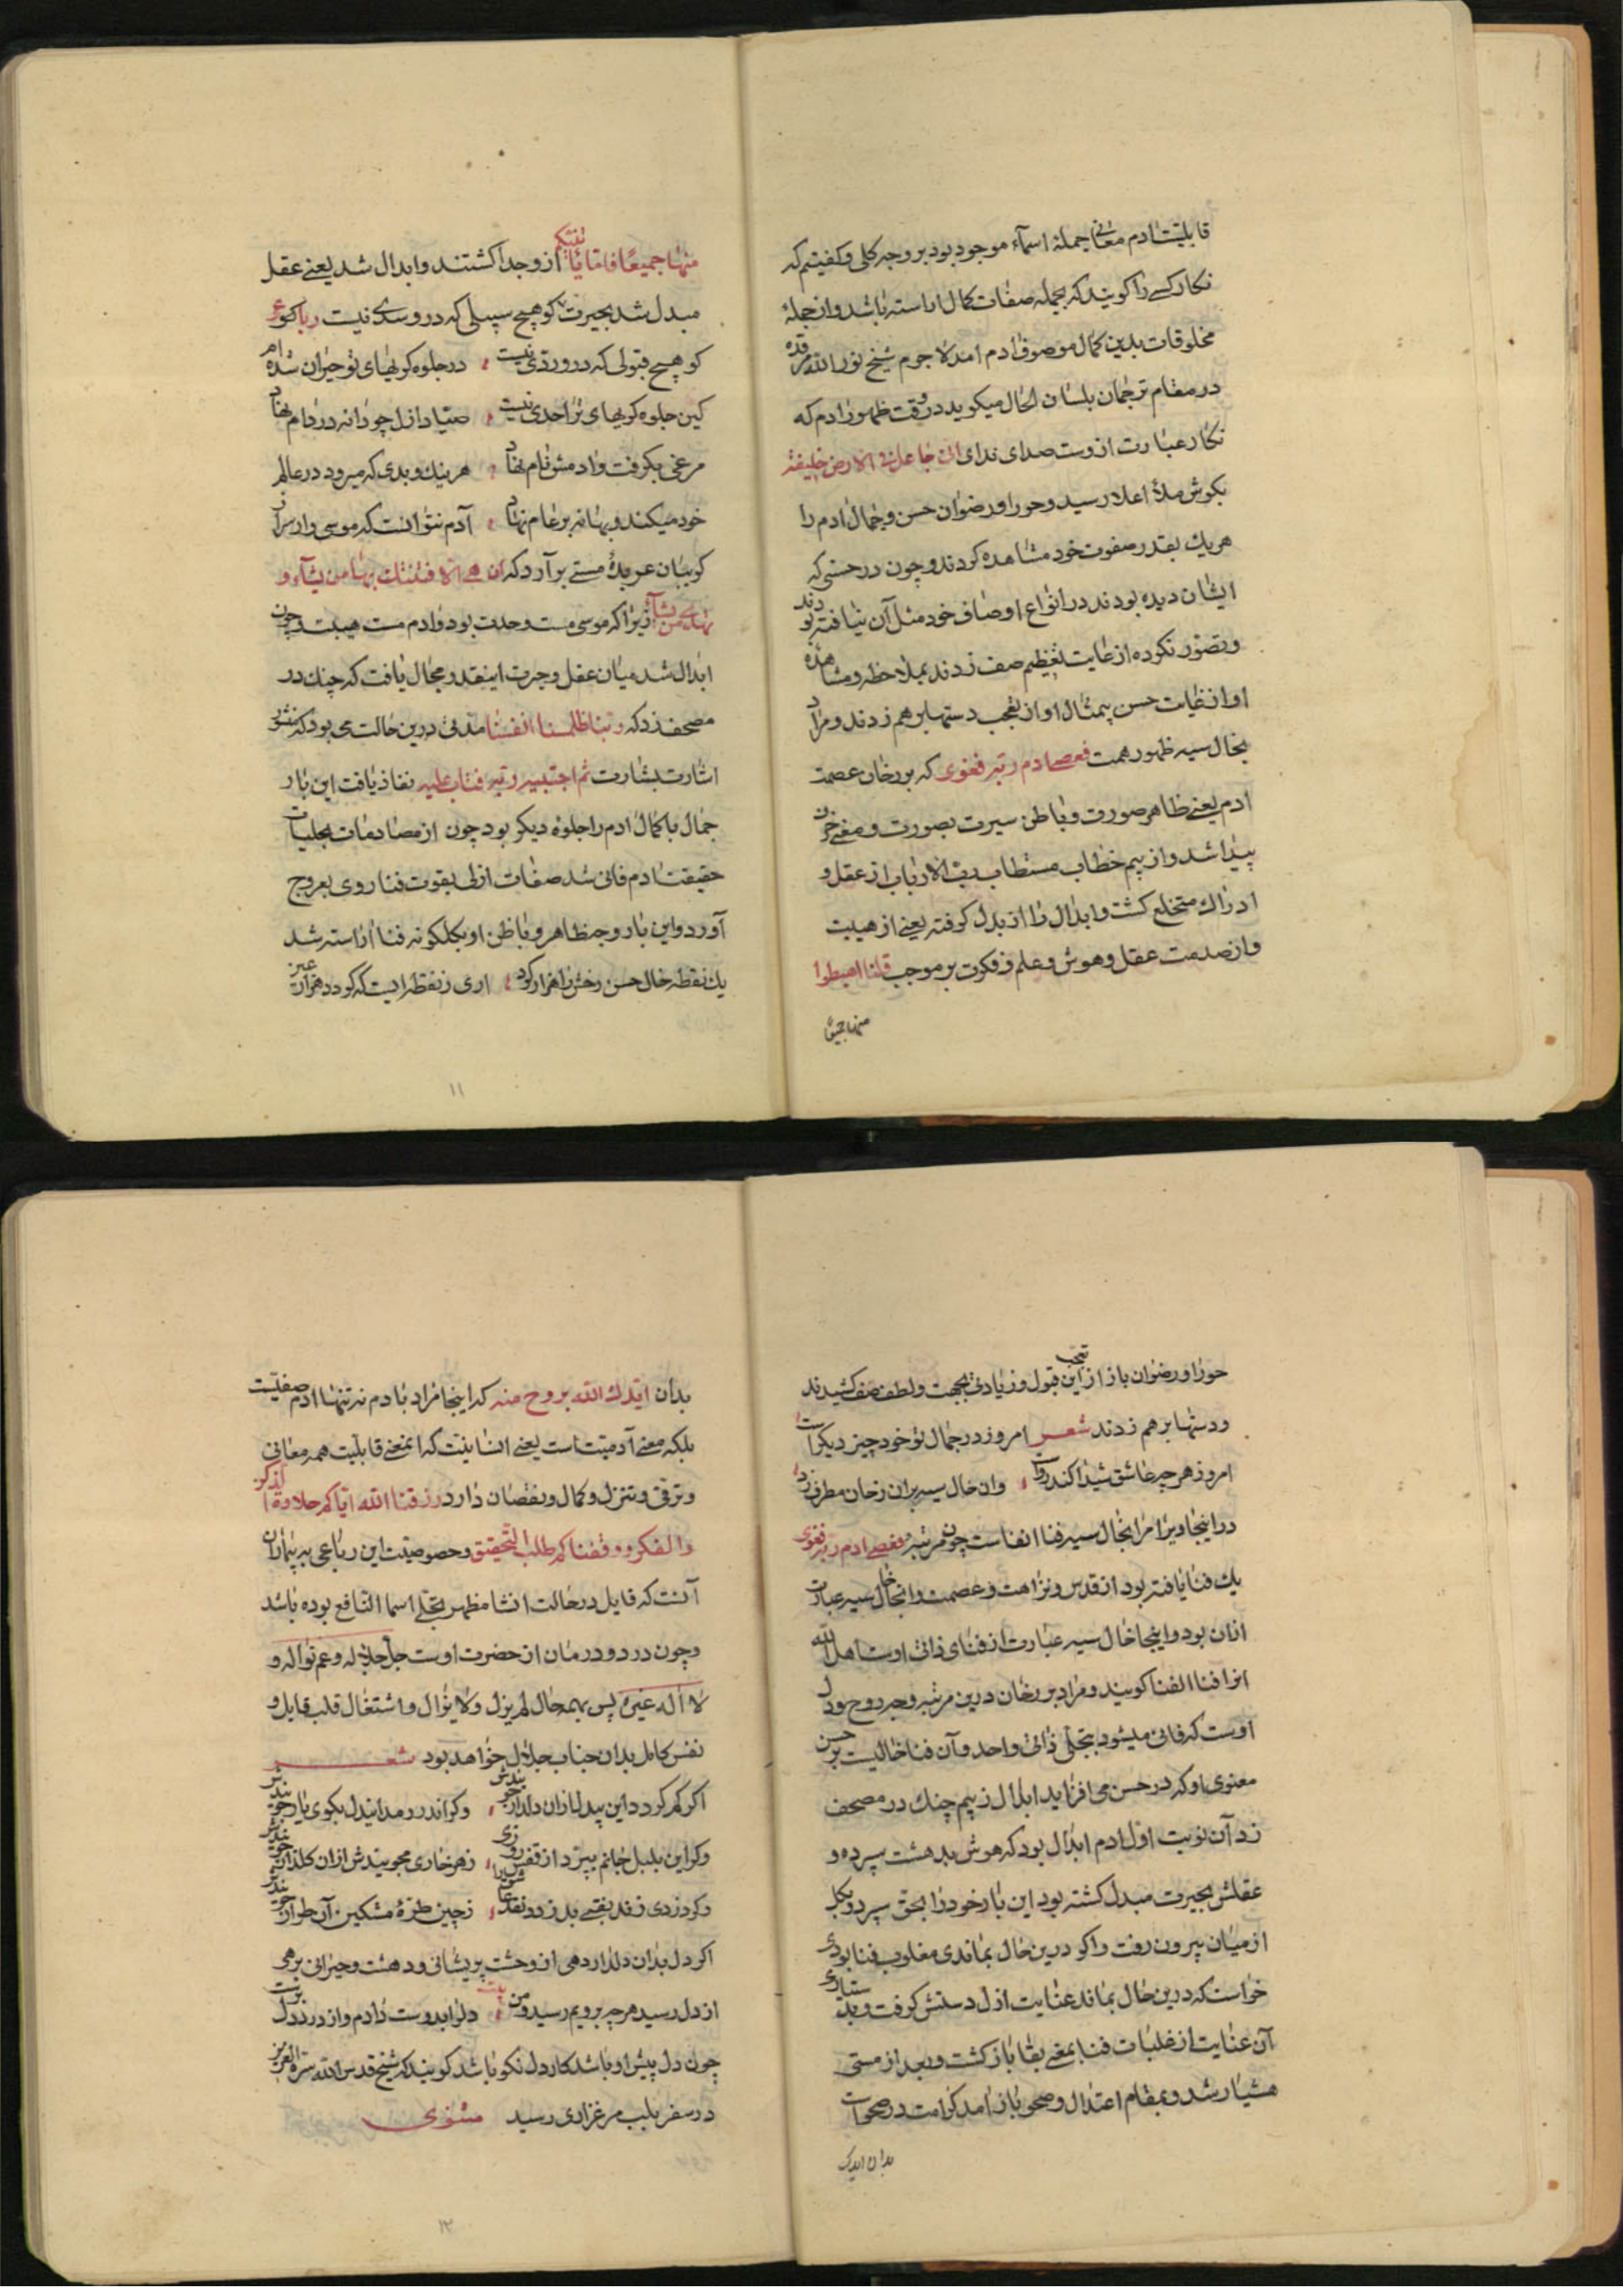 قابلیت ادم معانی جملهٔ اسمآء موجود بود بر وجه کلی و کفتیم که
نکار کسے را کویند که بجمله صفات کمال اراسته باشد و از جملهٔ
مخلوقات بدین کمال موصوف ادم امد لاجرم شیخ نور الله مرقده
در مقام ترجمان بلسان الحال میکوید در وقت ظهور ادم که
نکار عبارت ازوست صدای ندای انی جاعل فی الارض خلیفة
بکوش ملأ اعلا رسید و حورا و رضوان حسن و جمال ادم را
هر یك بقدر صفوت خود مشاهده کردند و چون در حسنی که
ایشان دیده بودند در انواع اوصاف خود مثل آن نیافته بودند
و تصور نکرده از غایت تعظیم صف زدند بملاحظه و مشاهده
او از غایت حسن بیمثال او از تعجب دستها بر هم زدند و مراد
بخال سیه ظهور همت فعصی ادم ربه فغوی که بر رخان عصمت
ادم یعنے ظاهر صورت و باطن سیرت بصورت و معنے
پیدا شد و از بیم خطاب مستطاب رب الارباب از عقل و
ادراك متخلع کشت و ابدال را از بدل کرفته یعنے از هیبت
و از صدمت عقل و هوش و علم و فکرت بر موجب قلنا اهبطوا
منها جمیعًا
منها جمیعًا فاما یأتینکم از وجدا کشتند و ابدال شد یعنے عقل
مبدل شد بحیرت کو هیچ سبیلی که درو سدی نیست رباعی
کو هیچ قبولی که درو ردی نیست در جلوه کریهای تو حیران شده ام
کین جلوه کریهای ترا حدی نیست صیاد ازل چو دانه در دام نهاد
مرغی بکرفت و ادمش نام نهاد هر نیك و بدی که میرود در عالم
خود میکند و بهانه بر عام نهاد آدم نتوانست که موسی وار سر از
کریبان عربدهٔ مستے بر آرد که ان هی الا فتنتك تضل بها من تشآء و
تهدی من تشآء زیرا که موسی مست وحدت بود و ادم مست هیبت چون
ابدال شد میان عقل و حیرت اینقدر مجال یافت که چنك در
مصحف زد که ربنا ظلمنا انفسنا مدتی درین حالت می بود که منشور
اشارت بشارت ثم اجتبیه ربه فتاب علیه نفاذ یافت این بار
جمال باکمال ادم را جلوهٔ دیکر بود چون از مصادمات تجلیات
حقیقت ادم فانی شد صفات ازلی بقوت فنا روی بعروج
آورد و این بار وجه ظاهر و باطن او بکلکونه فنا اراسته شد
یك نقطه خال حسن رخش را هزار کرد اری ز نقطه ایست که کردد هزار
۱۱
حورا و رضوان باز از تعجب این قبول و زیادتی بهجت و لطف صف کشیدند
و دستها بر هم زدند شعر امروز در جمال تو خود چیز دیکر است
امروز هر چه عاشق شیدا کند رواست وان خال سیه بران رخان مطرف زد
در اینجا ویرا مراد بخال سیه فنا الفناست چون در مرتبه فعصی ادم ربه فغوی
یك فنا یافته بود از قدس و نزاهت و عصمت و انجا خال سیه عبارت
ازان بود و اینجا خال سیه عبارت از فنای ذاتی اوست اهل الله
انرا فنا الفنا کویند و مراد بر رخان درین مرتبه وجه روح و دل
اوست که فانی میشود بتجلی ذاتی واحد و آن فنا خالیست بر حسن
معنوی او که در حسن می افزاید ابدال ز بیم چنك در مصحف
زد آن نوبت اول ادم ابدال بود که هوش بدهشت سپرده و
عقلش بحیرت مبدل کشته بود این بار خود را بحق سپرد و بکل
از میان بیرون رفت و اکر درین حال بماندی مغلوب فنا بودی
خواست که درین حال بماند عنایت ازل دستش کرفت و بدستیاری
آن عنایت از غلبات فنا بمعنے بقا باز کشت و بعد از مستی
هشیار شد و بمقام اعتدال و صحو باز امد کرامت در صحو است
بدان ایدك
بدان ایدك الله بروح منه که اینجا مراد بادم نه تنها ادم صفیست
بلکه معنے آدمیت است یعنے انسانیت که انمعنے قابلیت همه معانی
و ترقی و تنزل و کمال و نقصان دارد رزقنا الله ایاکم حلاوة الذکر
و الفکر و وفقنا کم طلب التحقیق و خصوصیت این رباعی به بیماران
آنست که قایل در حالت انشا مظهر تجلے اسما النافع بوده باشد
و چون درد و درمان از حضرت اوست جل جلاله و عم نواله و
لا اله غیره پس بهمه حال لم یزل و لا یزال و اشتغال قلب قابل و
نفس کامل بدان جناب جلال خواهد بود شعر
اکر کم کردد این بیدل ازان دلدار جویندش وکر اندر رمد ایندل بکوی یار جویندش
وکر این بلبل جانم بپرد از قفس روزی زهر خاری مجویندش ازان کلزار جویندش
وکر دزدی زند نقبے بدزدد نقد ز چین طرهٔ مشکین آن طرار جویندش
اکر دل بدان دلدار دهی از وحشت پریشانی و دهشت و حیرانی برهی
از دل رسید هر چه برویم رسید و من بیت دل را بدوست دادم و از درد دل
چون دل پیش او باشد کار دل نکو باشد کویند که شیخ قدس الله سره العزیز
در سفر بلب مرغزاری رسید مثنوی
۱۲